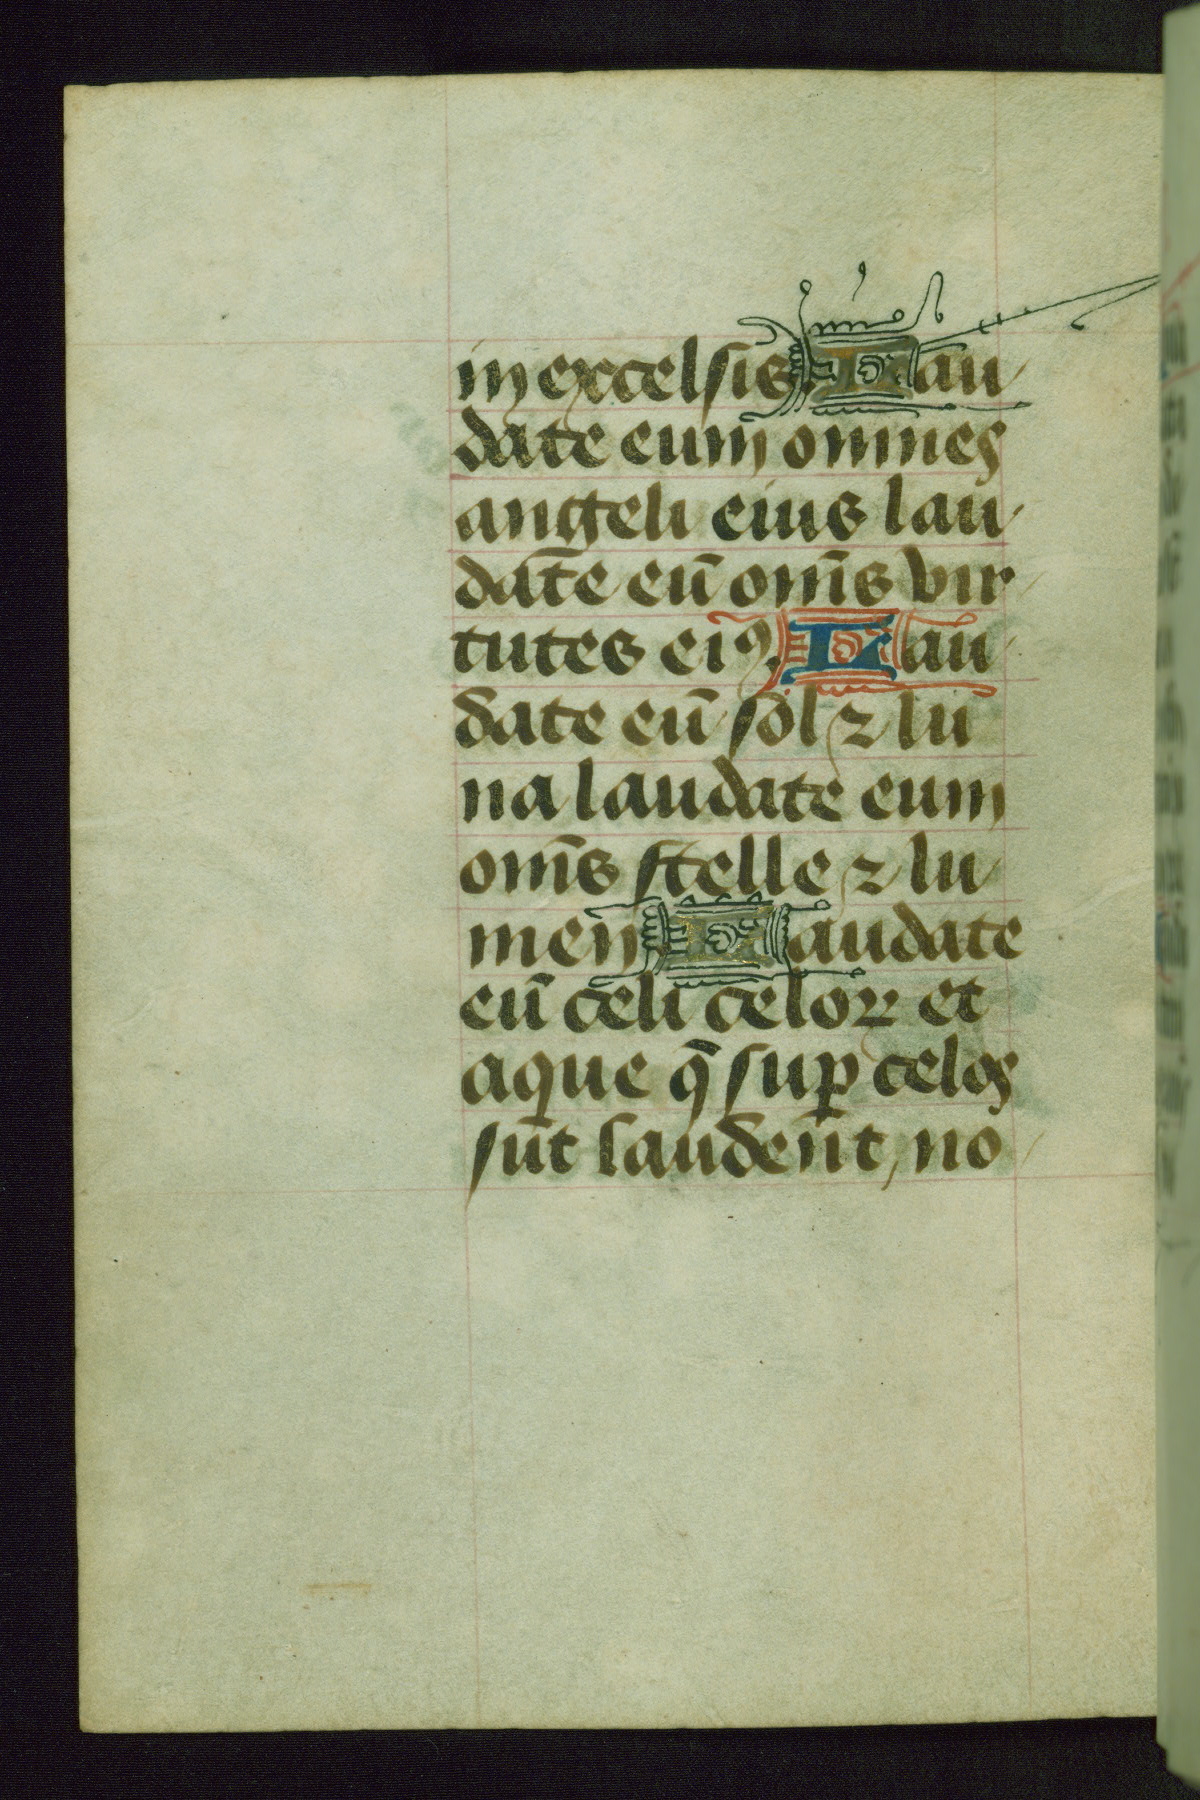 in excelsis. Lau
date eum omnes
angeli eius lau
date eū om̄s vir
tutes eiꝰ. Lau
date eū sol ⁊ lu
na laudate eum
om̄s stelle ⁊ lu
men. Laudate
eū celi celoꝝ et
aque q̄ suꝑ celos
sūt laudent, no